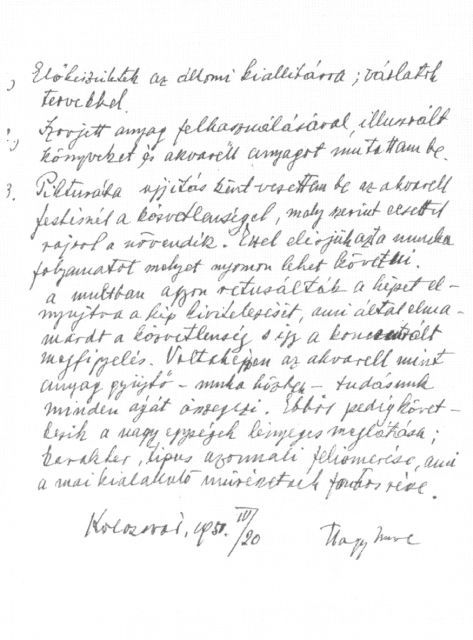 1) Előkészültek az állami kiállításra; vázlatok
tervekkel.
2.) Szovjett anyag felhasználásával, illusztrált
könyveket és akvarell anyagot mutattam be.
3. Pikturába ujjitás ként vezettem be az akvarell
festésnél a közvetlenségel, mely szerint ecsettel
rajzol a növendék. Ezzel elérjük azt a munka
folyamatot melyet nyomon lehet követni.
a multban agyon retusálták a képet el-
nyujtva a kép kivitelezését, ami által elma-
radt a közvetlenség s igy a koncentrált
megfigyelés. Voltaképpen az akvarell mint
anyag gyüjtő - munka közben - tudásunk
minden ágát összegezi. Ebből pedig követ-
kezik a nagy egységek lényeges meglátása;
karakter, tipus azonnali felismerése, ami
a mai kialakuló művészetnek fontos része.
Kolozsvár, 1950. IV/20
Nagy Imre